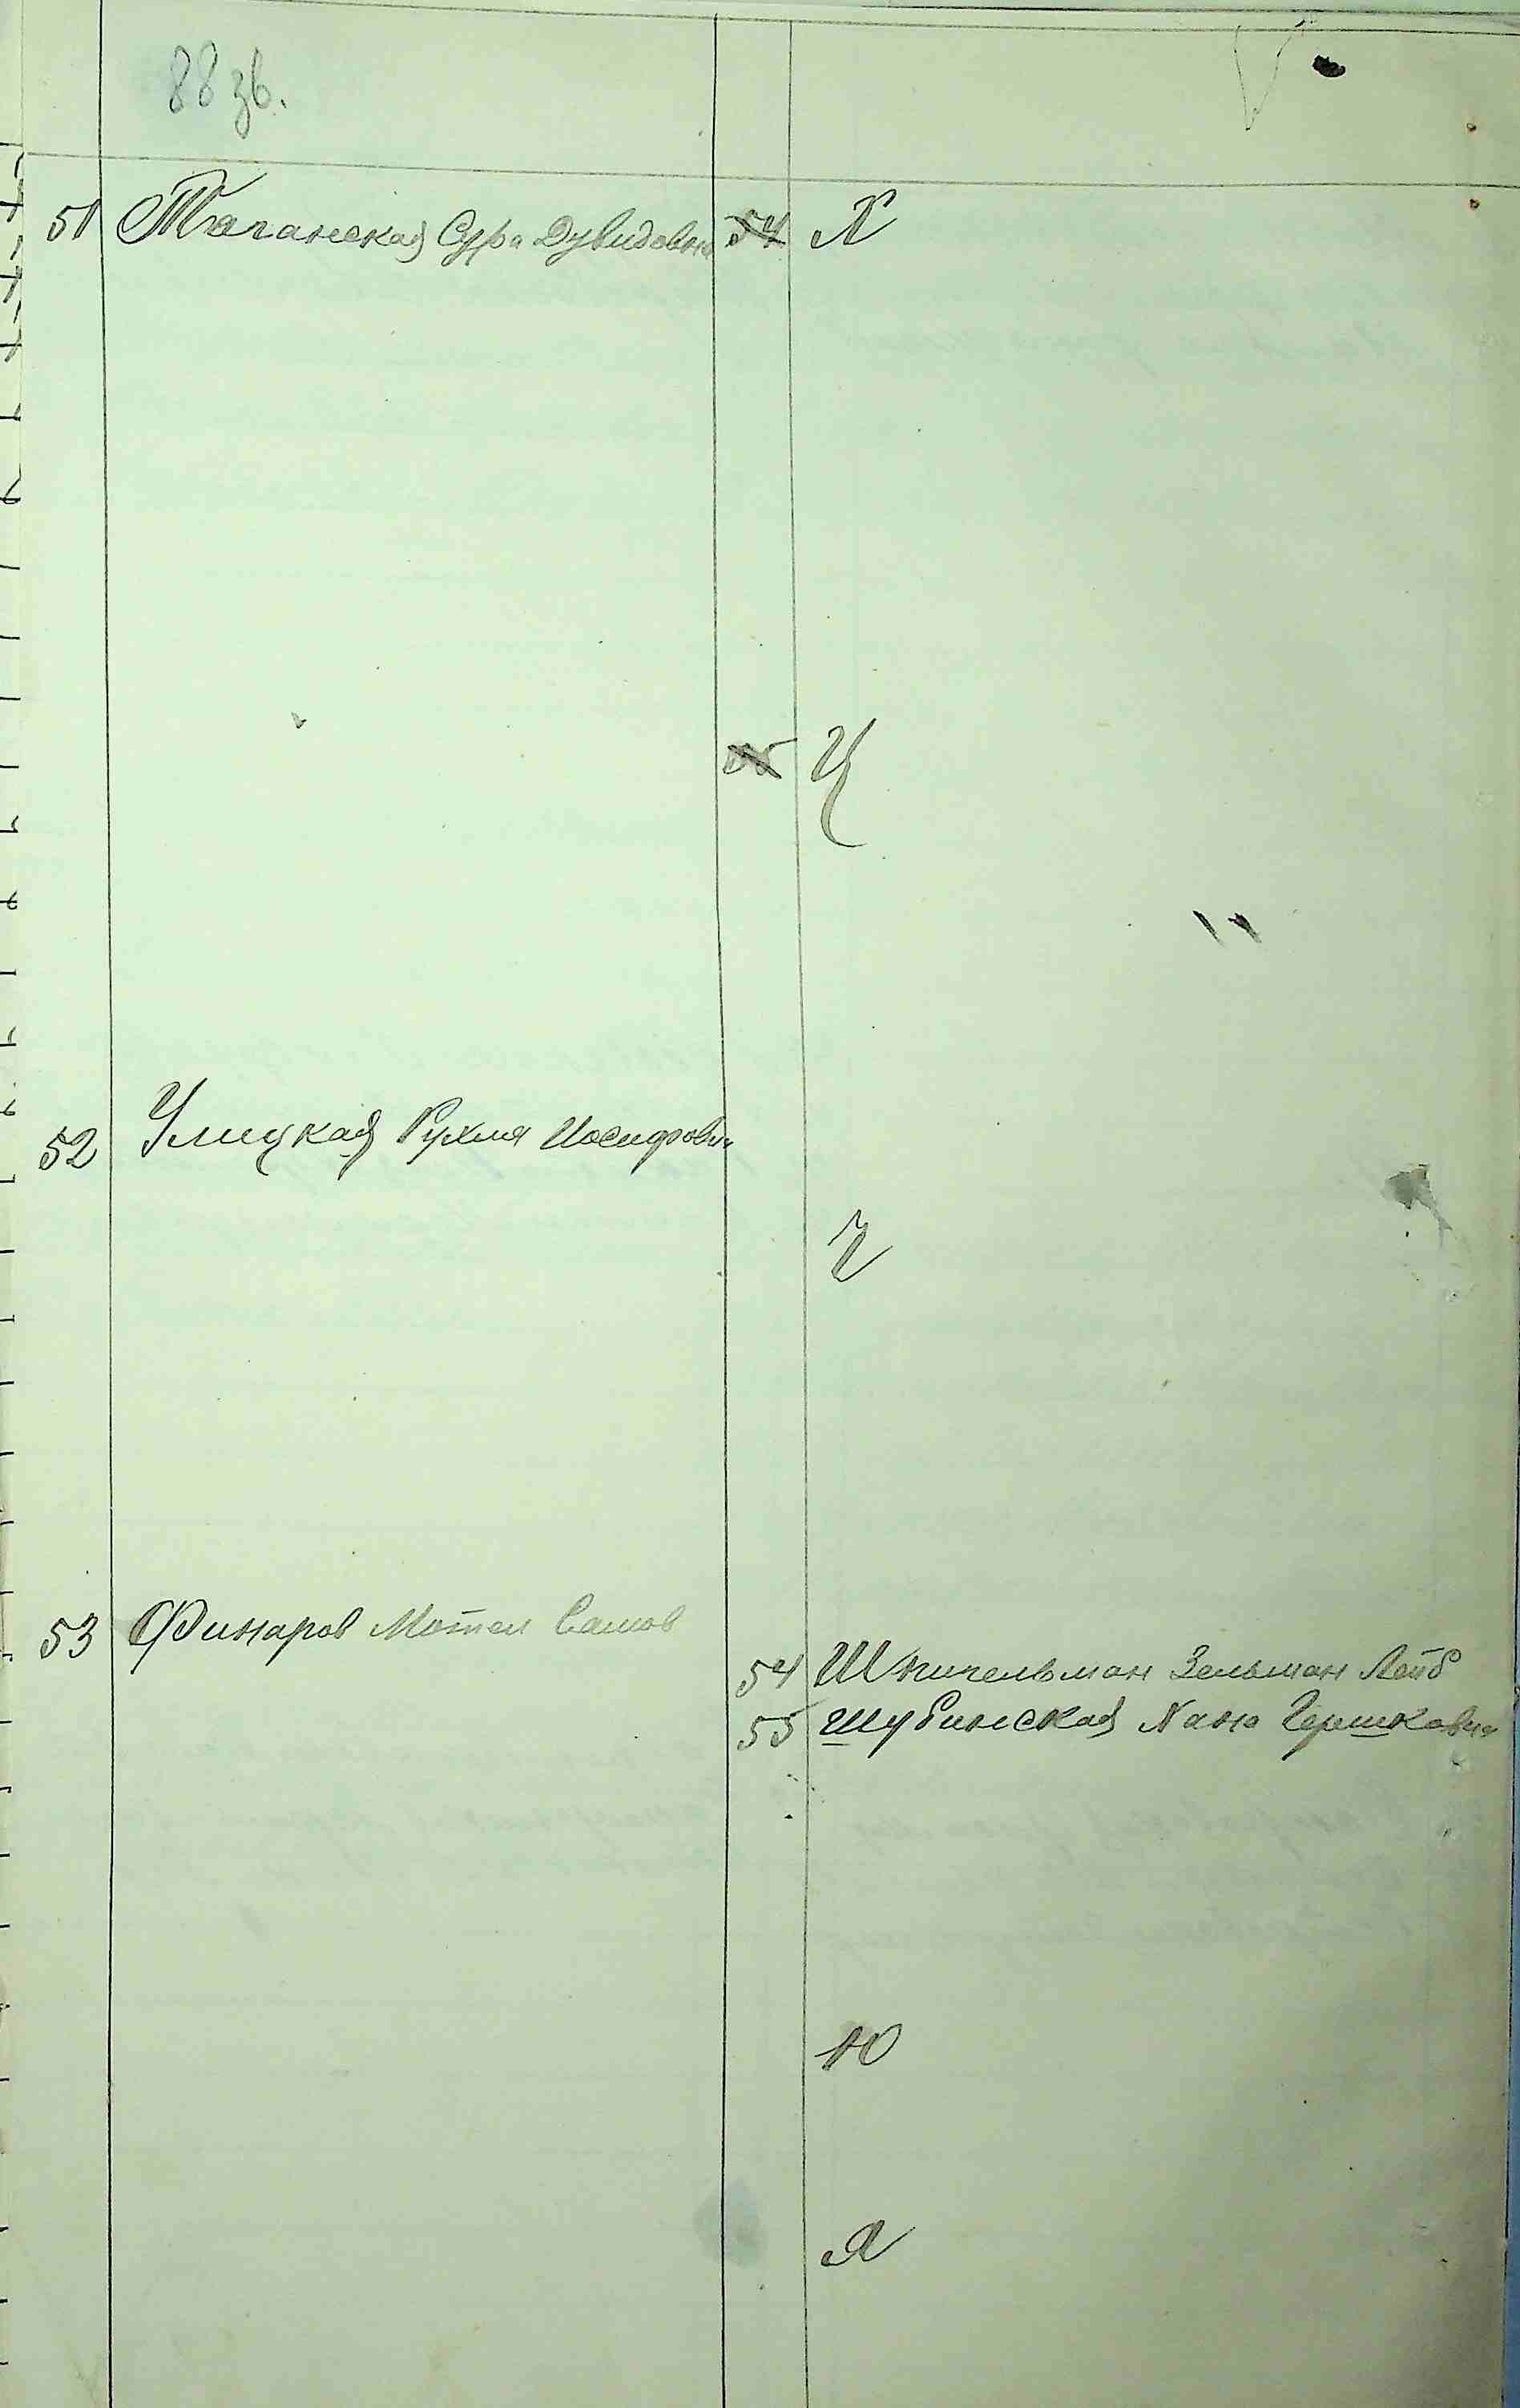 88 зв.
51 Таганская Сура Дувидовна
52 Улицкая Рухля Иосифовн
53 Финаров Мотел Самов
54 Х
55 Ц
Ч
54 Шпигельман Зельман Лейб
55 Шубинская Хана Гершковна
Ю
Я